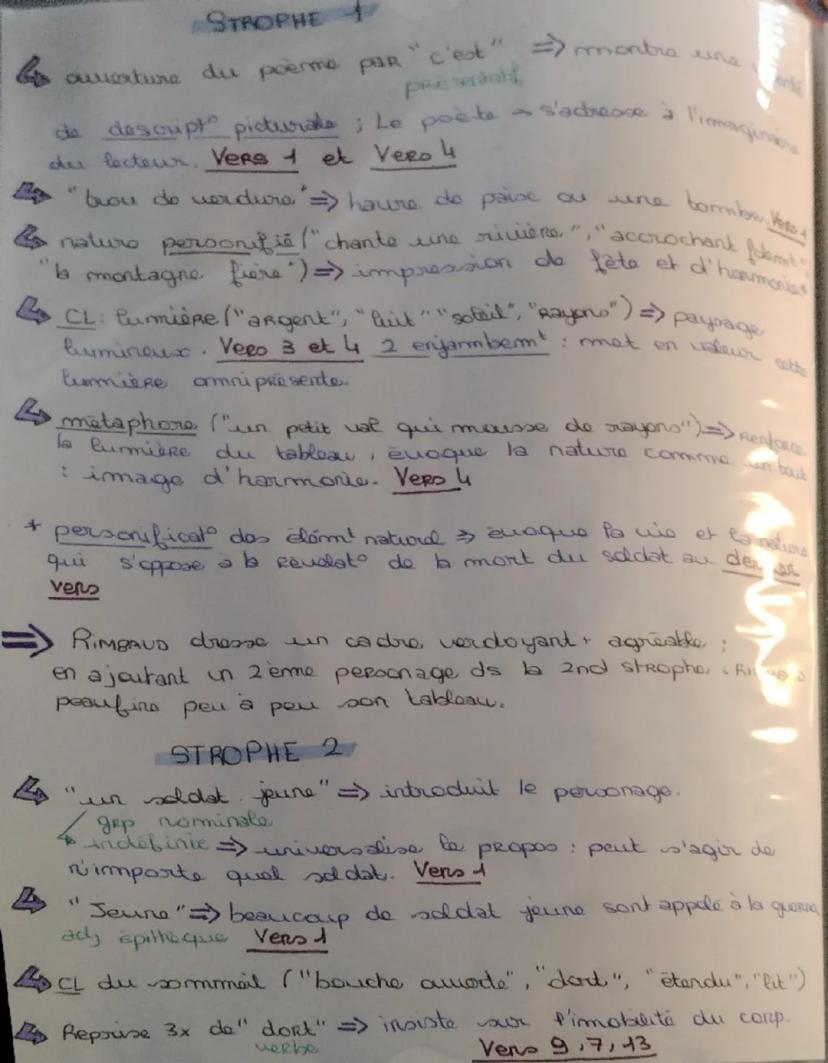 STROPHE 1
ouverture du poème par "c'est" => montre une
présentatif
de descript° picturale ; Le poète → s'adresse à l'imaginaire
du lecteur. Vers 1 et Vers 4
"trou de verdure" => havre de paix ou une tombe. Vers 1
nature personifié ("chante une rivière", "accrochant
"la montagne fière") => impression de fête et d'harmonie
CL: lumière ("argent", "luit" "soleil", "rayons") => paysage
lumineux. Vers 3 et 4 2 enjambemt : met en valeur cette
lumière omniprésente.
métaphore ("un petit val qui mousse de rayons") => Renforce
la lumière du tableau, évoque la nature comme un tout
: image d'harmonie. Vers 4
+ personificat° des élémt naturel => évoque la vie et la nature
qui s'oppose à la révélat° de la mort du soldat au dernier
vers
=> RIMBAUD dresse un cadre verdoyant + agréable ;
en ajoutant un 2ème personage ds la 2nd strophe :
peaufine peu à peu son tableau.
STROPHE 2
"un soldat jeune" => introduit le personage.
grp nominale
indéfinie => universalise le propos : peut s'agir de
n'importe quel soldat. Vers 1
"Jeune" => beaucoup de soldat jeune sont appelé à la guerre
adj épithèque Vers 1
CL du sommeil ("bouche ouverte", "dort", "étendu", "lit")
Reprise 3x de "dort" => insiste sur l'immobilité du corp.
verbe Vers 9, 7, 13